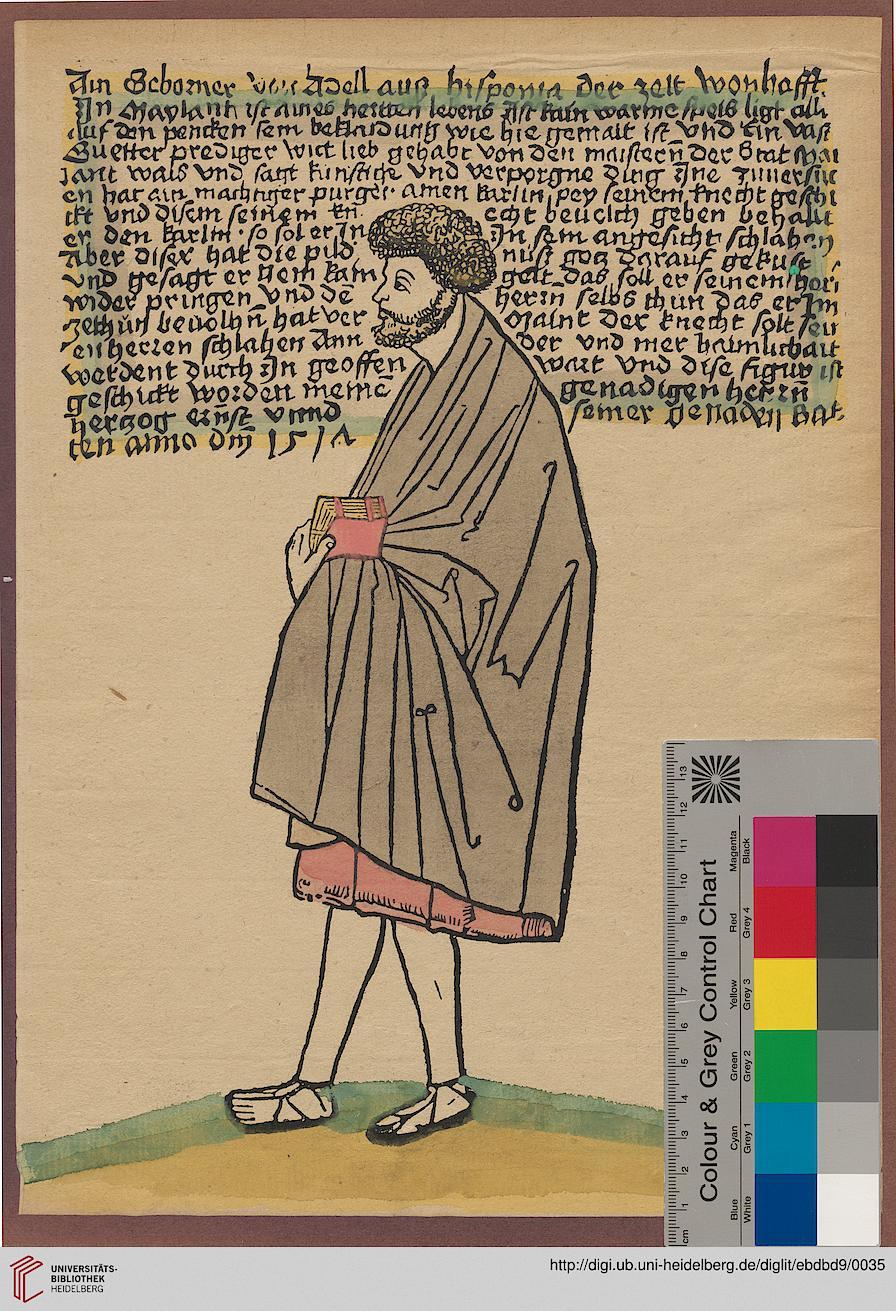 Ain Gborner von Adell ausz hisponia der zelt wonhafft
In Maylant ist aines hertten lebens Ist kain warme speis ligt alli
auf den pencken sem beklaidung wie hie gemalt ist und ein vast
Guetter prediger wirt lieb gehabt von den maistern̄ der Stat Mai
lant wals und sagt kunstiche und verporgne ding Ine
en hat ain machtiger purger amen karlin pey seinem knecht geschi
ckt und disem seinem kn echt beuelch geben behalt
er den karlin so sol er In In sein angesicht schlahen
Aber diser hat die pild nusz gotz darauf gekust
und gesagt er dem kain gelt das soll er seinem herr
wider pringen und de herrn selbs thun das er Im
zethun beuolhn̄ hat ver Maint der knecht solt sein
en herren schlahen Ann der und mer haimlichait
werdent durch In geoffen wart und dise figur ist
geschickt worden meinē genadigen herrn̄
herzog ernst unnd seiner genaden Rat
ten anno dm̄ 151
cm 1 2 3 4 5 6 7 8 9 10 11 12 13
Colour & Grey Control Chart
Blue Cyan Green Yellow Red Magenta
White Grey 1 Grey 2 Grey 3 Grey 4 Black
UNIVERSITÄTS-
BIBLIOTHEK
HEIDELBERG
http://digi.ub.uni-heidelberg.de/diglit/ebdbd9/0035